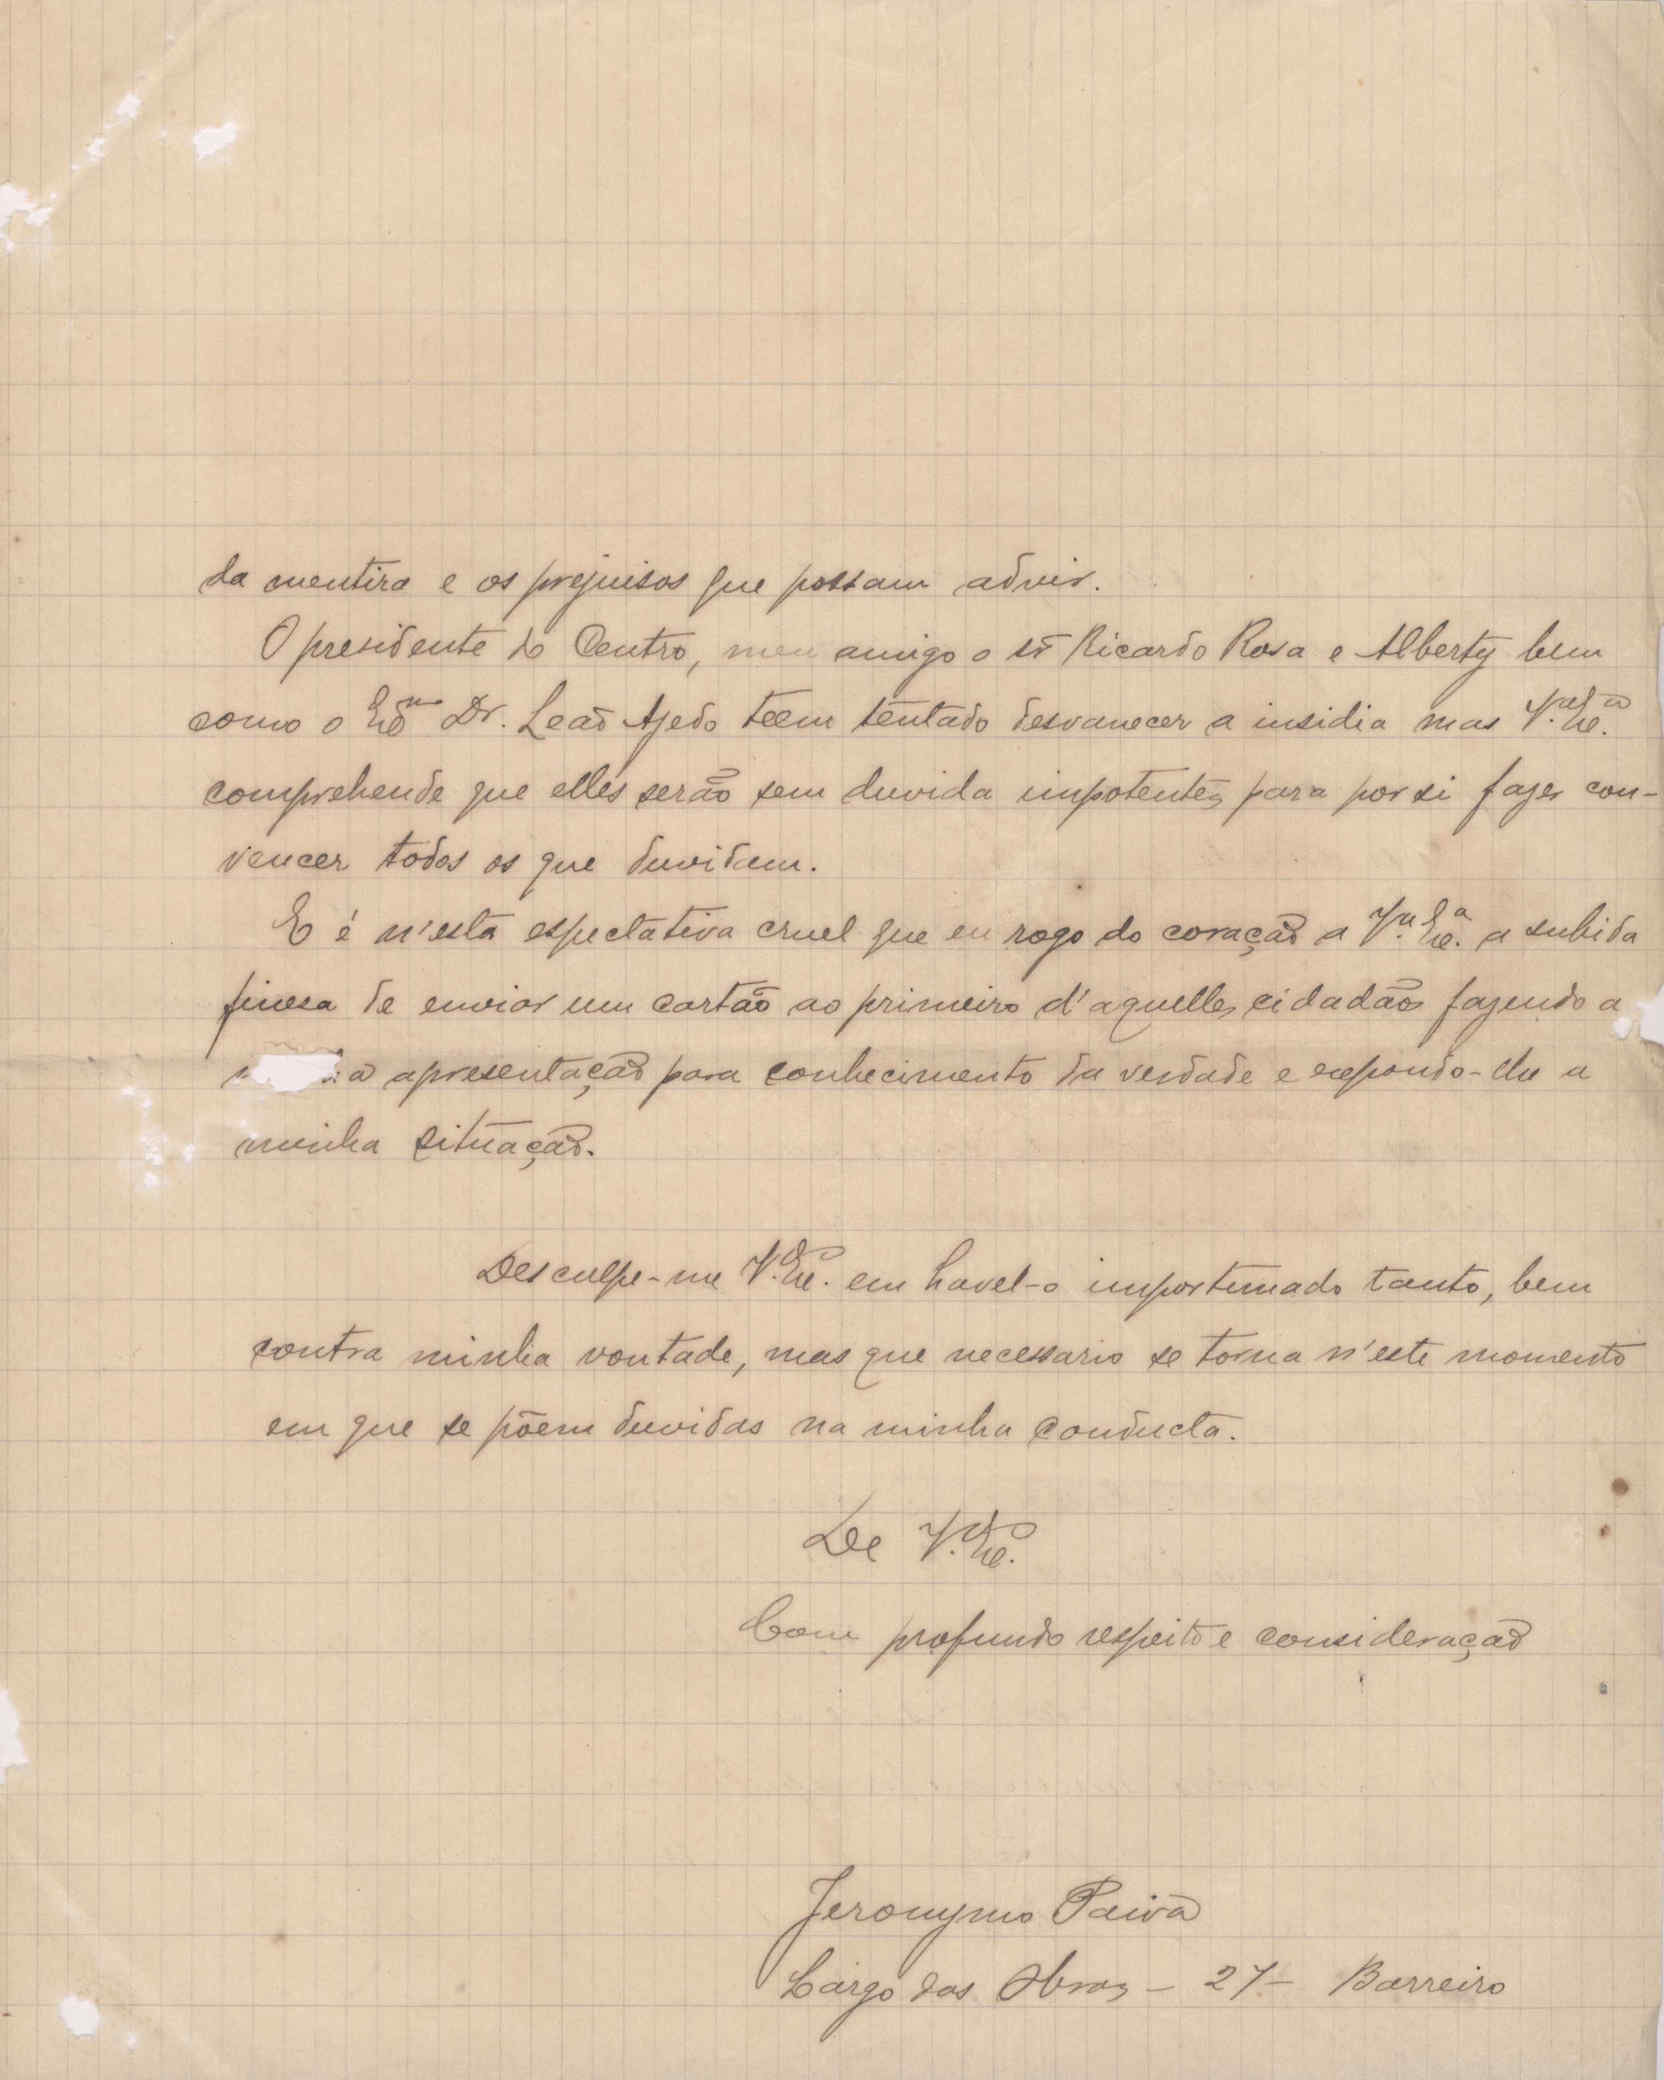 da mentira e os prejuisos que possam advir.
O presidente do Centro, meu amigo o sr Ricardo Rosa e Alberty bem
como o Dr. Leão Azedo teem tentado desvanecer a insidia mas V.ª Ex.ª
comprehende que elles serão sem duvida impotentes para por si fazer con-
vencer todos os que duvidam.
E é n'esta espectativa cruel que eu rogo do coração a V.ª Ex.ª a subida
finesa de enviar um cartão ao primeiro d'aquelles cidadãos fazendo a
apresentação para conhecimento da verdade e expondo-lhe a
minha situação.
Desculpe-me V. Ex.ª em havel-o importunado tanto, bem
contra minha vontade, mas que necessario se torna n'este momento
em que se põem duvidas na minha conducta.
De V. Ex.ª
Com profundo respeito e consideração
Jeronymo Paiva
Largo das Obras - 27 - Barreiro